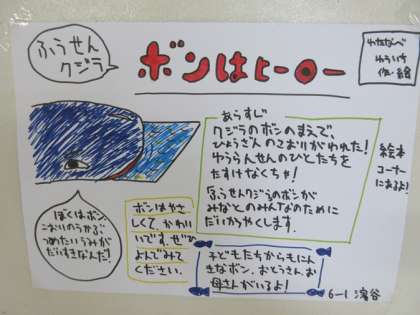 ふうせん
クジラ
ボンはヒーロー
わたなべ
ゆういち
作・絵
あらすじ
クジラのボンのまえで、
ひょうざんのこおりがわれた!
ゆうらんせんのひとたちを
たすけなくちゃ!
ふうせんクジラのボンが
みなとのみんなのために
だいかつやくします。
絵本
コーナー
にあるよ!
ぼくはボン。
こおりのうかぶ、
つめたいうみが
だいすきなんだ!
ボンはやさ
しくて、かわい
いです。ぜひ
よんでみて
ください。
子どもたちからもにん
きなボン。おとうさん、お
母さんがいるよ!
6-1 濱谷